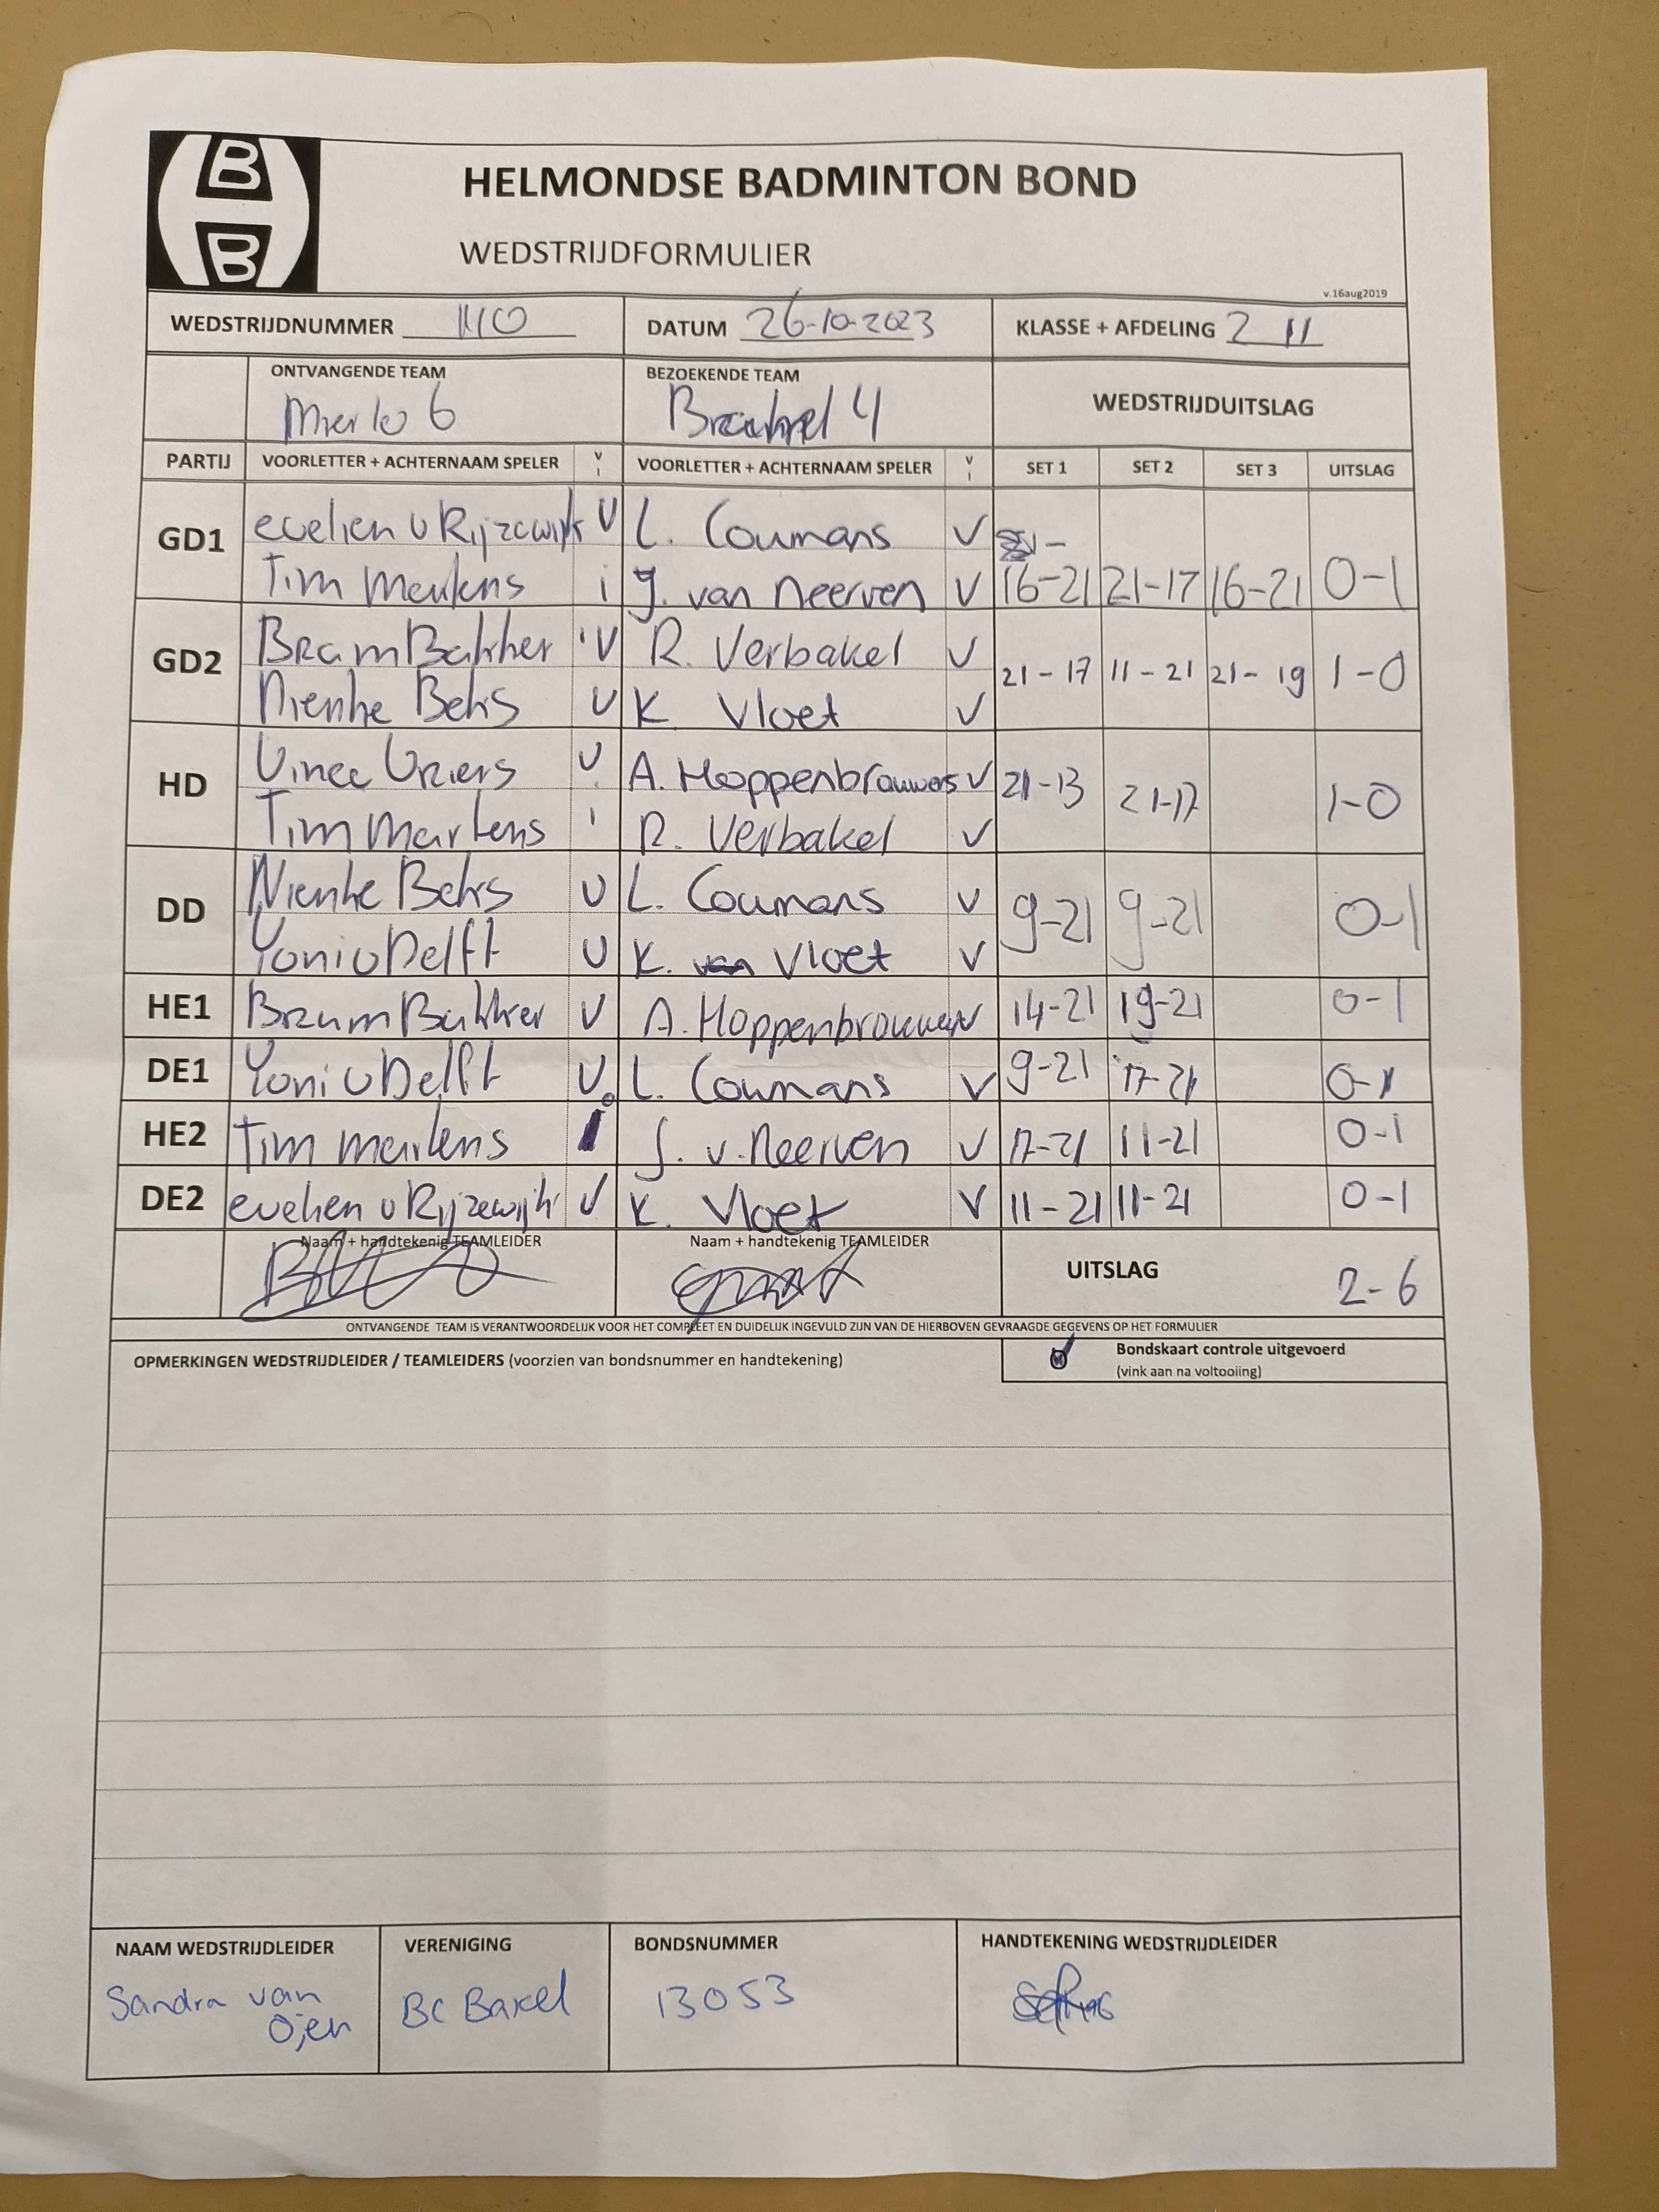 B
B
HELMONDSE BADMINTON BOND
WEDSTRIJDFORMULIER
v.16aug2019
WEDSTRIJDNUMMER 1110 DATUM 26-10-2023 KLASSE + AFDELING 2 11
ONTVANGENDE TEAM BEZOEKENDE TEAM WEDSTRIJDUITSLAG
Mierlo 6 4
PARTIJ VOORLETTER + ACHTERNAAM SPELER V I VOORLETTER + ACHTERNAAM SPELER V I SET 1 SET 2 SET 3 UITSLAG
GD1 evelien v Rijzewijk V L. Coumans V
Tim Martens i J. van Neerven V 16-21 21-17 16-21 0-1
GD2 Bram Bakker V R. Verbakel V 21-17 11-21 21-19 1-0
Nienke Beks V K Vloet V
HD Vince Vriers V A. Hoppenbrouwers V 21-13 21-17 1-0
Tim Martens i R. Verbakel V
DD Nienke Beks V L. Coumans V 9-21 9-21 0-1
Yoni v Delft V K. Vloet V
HE1 Bram Bakker V A. Hoppenbrouwers V 14-21 19-21 0-1
DE1 Yoni v Delft V L. Coumans V 9-21 17-21 0-1
HE2 Tim Martens J. v. Neerven V 17-21 11-21 0-1
DE2 evelien v Rijzewijk V K. Vloet V 11-21 11-21 0-1
Naam + handtekenig TEAMLEIDER Naam + handtekenig TEAMLEIDER UITSLAG 2-6
ONTVANGENDE TEAM IS VERANTWOORDELIJK VOOR HET COMPLEET EN DUIDELIJK INGEVULD ZIJN VAN DE HIERBOVEN GEVRAAGDE GEGEVENS OP HET FORMULIER
OPMERKINGEN WEDSTRIJDLEIDER / TEAMLEIDERS (voorzien van bondsnummer en handtekening) Bondskaart controle uitgevoerd
(vink aan na voltooiing)
NAAM WEDSTRIJDLEIDER VERENIGING BONDSNUMMER HANDTEKENING WEDSTRIJDLEIDER
Sandra van BC Bakel 13053
Ojen